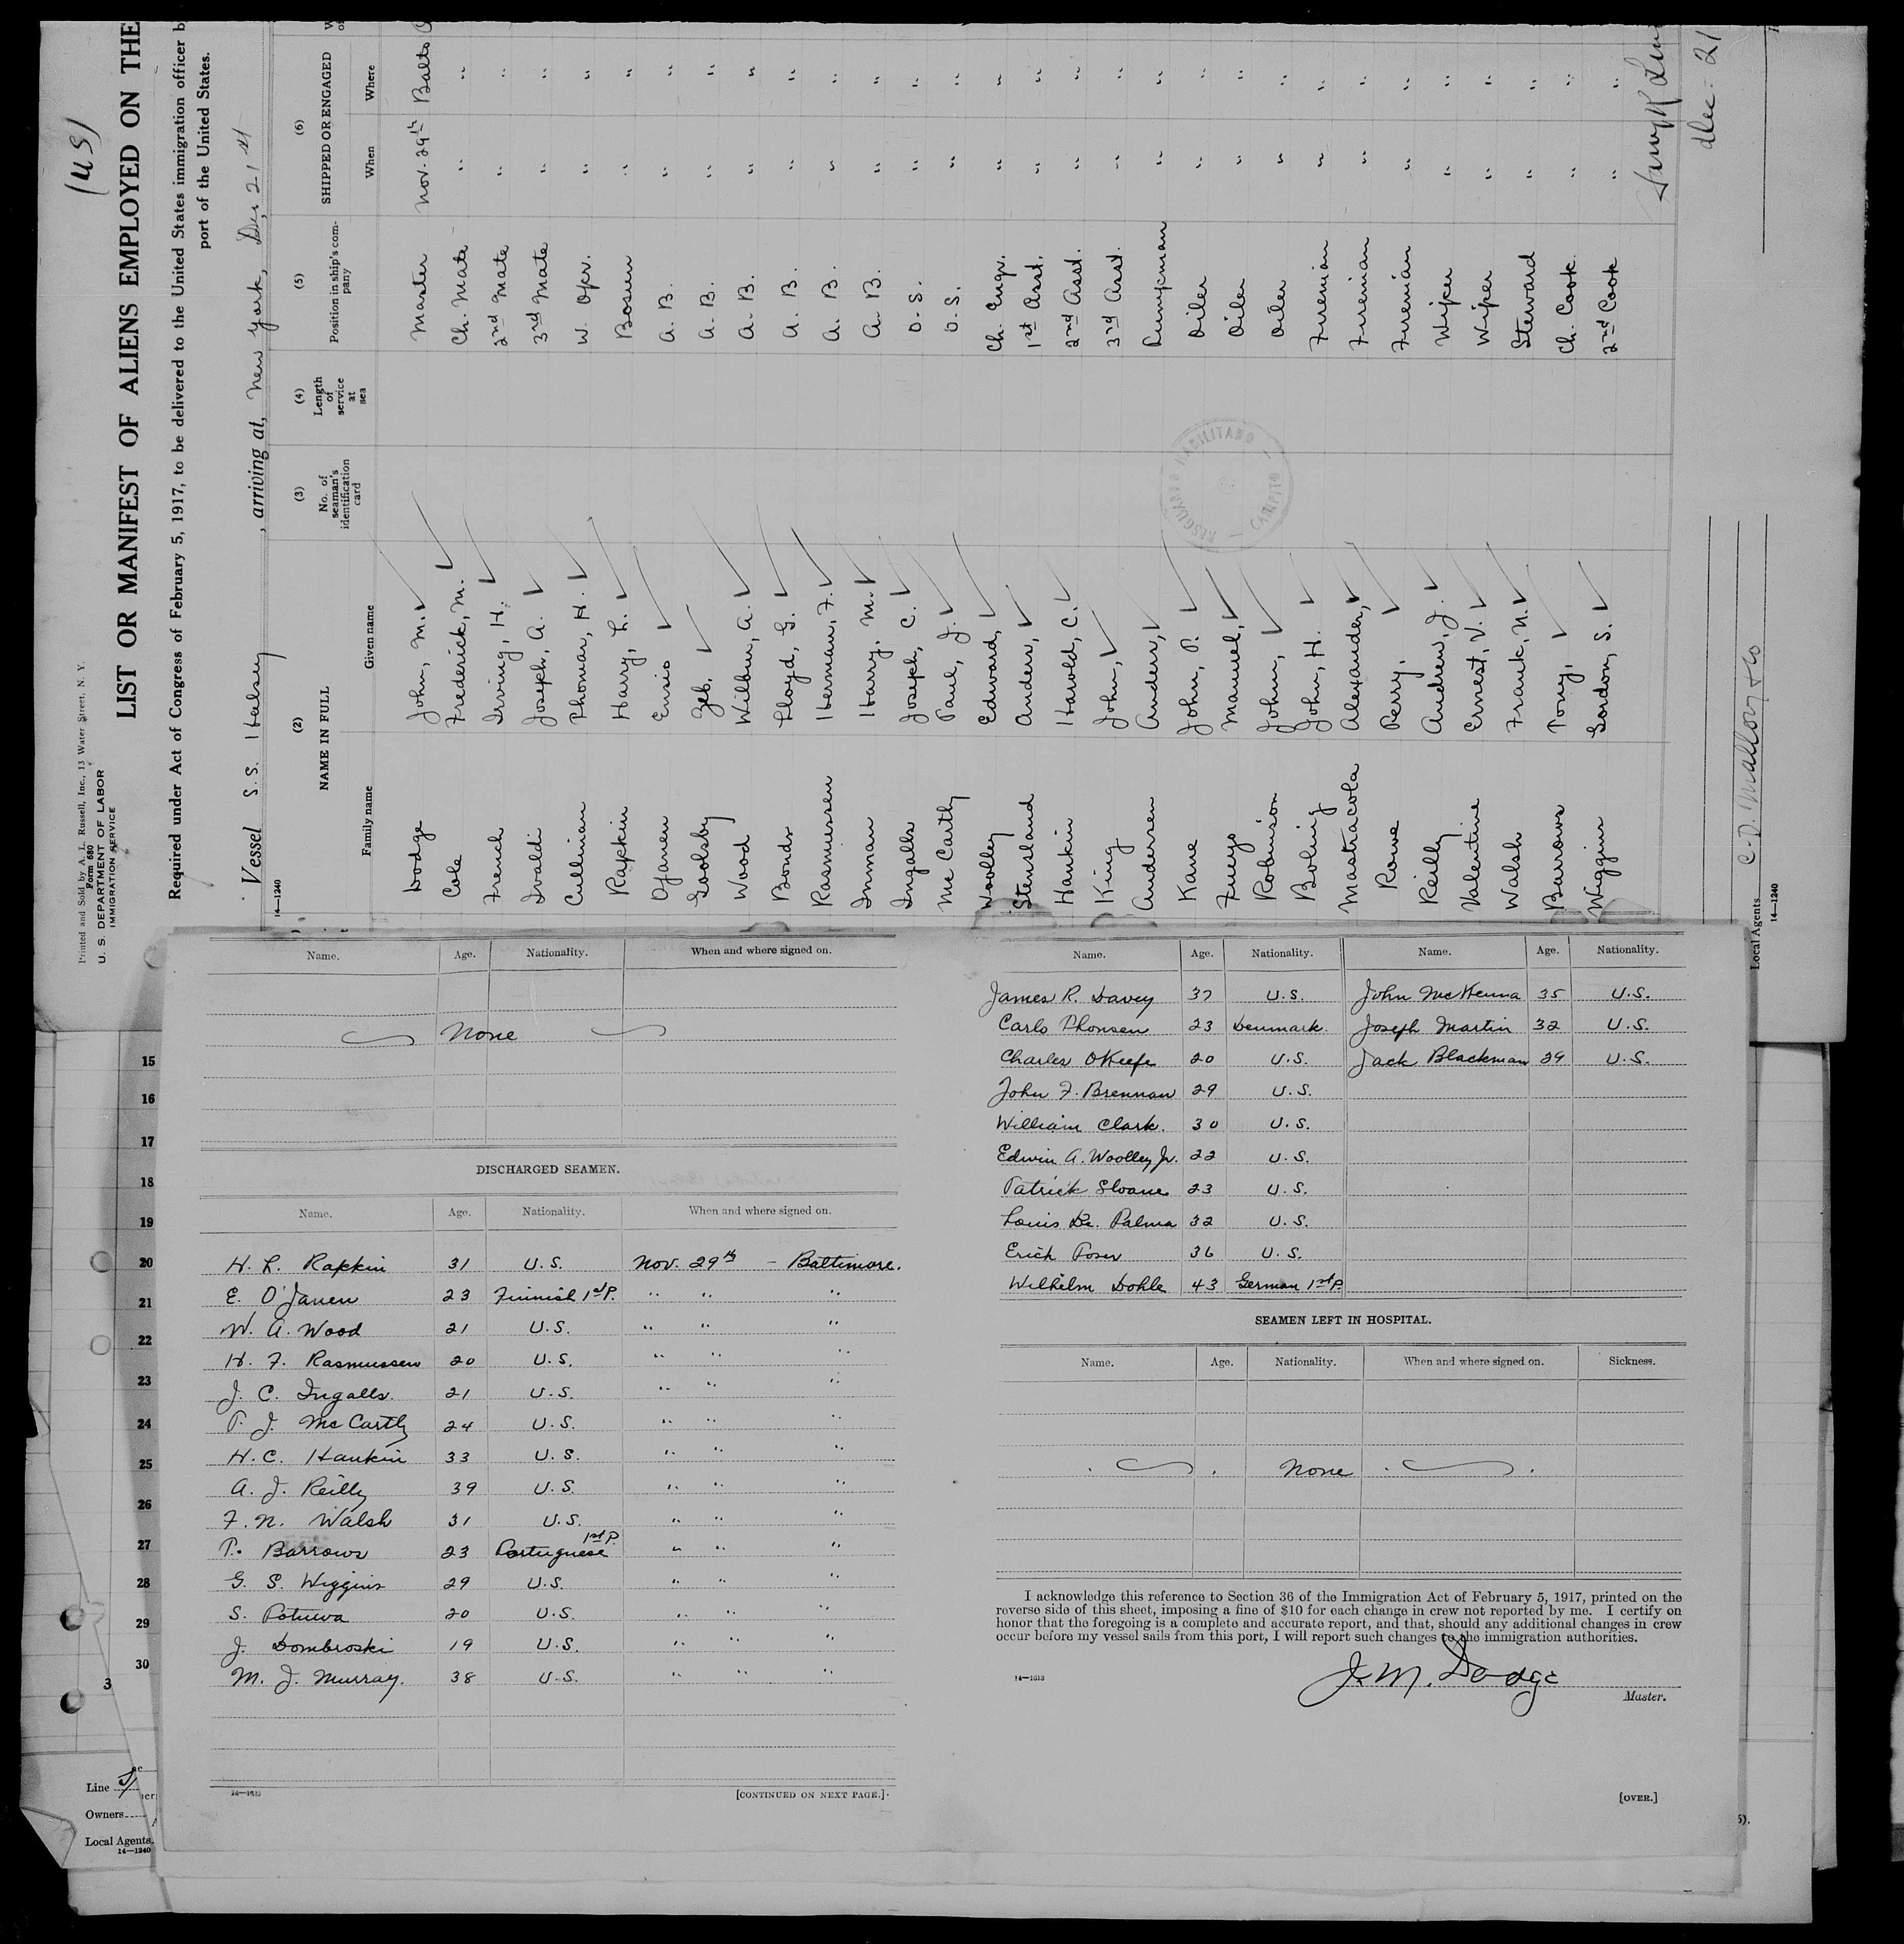 (us)
Printed and Sold by A. L. Russell, Inc., 13 Water Street, N. Y.
Form 680
U. S. DEPARTMENT OF LABOR
IMMIGRATION SERVICE
LIST OR MANIFEST OF ALIENS EMPLOYED ON THE
Required under Act of Congress of February 5, 1917, to be delivered to the United States immigration officer b
port of the United States.
Vessel S.S. Halsey, arriving at, New York, Dec 21st
14—1240
(2) (3) (4) (5) (6)
NAME IN FULL No. of seaman's identification card Length of service at sea Position in ship's company SHIPPED OR ENGAGED
Family name Given name When Where
Dodge John, M. Master Nov. 29th Balto
Cole Frederick, M. Ch. Mate " "
French Irving, H. 2nd Mate " "
Ivaldi Joseph, A. 3rd Mate " "
Cullinan Thomas, H. W. Opr. " "
Rapkin Harry, L. Bosun " "
Ojanen Ensio A. B. " "
Goolsby Zeb. A. B. " "
Wood Wilbur, A. A. B. " "
Bonds Lloyd, G. A. B. " "
Rasmussen Herman, F. A. B. " "
Inman Harry, M. A. B. " "
Ingalls Joseph, C. O. S. " "
Mc Cartly Paul, J. O. S. " "
Woolley Edward, Ch. Engr. " "
Stensland Anders, 1st Asst. " "
Hankin Harold, C. 2nd Asst. " "
King John, 3rd Asst. " "
Andersen Anders, Pumpman " "
Kane John, P. Oiler " "
Fueyo Manuel, Oiler " "
Robinson John, Oiler " "
Boling John, H. Fireman " "
Mastracola Alexander, Fireman " "
Rowe Perry, Fireman " "
Reilly Andrew, J. Wiper " "
Valentine Ernest, V. Wiper " "
Walsh Frank, N. Steward " "
Barrows Tony, Ch. Cook " "
Wiggins Gordon, S. 2nd Cook " "
RESGUARDO HABILITADO — CARIPITO —
Dec. 21
Local Agents C. D. Mallory & Co
14—1240
Name. Age. Nationality. When and where signed on.
None
DISCHARGED SEAMEN.
Name. Age. Nationality. When and where signed on.
H. L. Rapkin 31 U.S. Nov. 29th - Baltimore.
E. O'Janen 23 Finnish 1st P. " " "
W. A. Wood 21 U.S. " " "
H. F. Rasmussen 20 U.S. " " "
J. C. Ingalls. 21 U.S. " " "
P. J. Mc Cartly 24 U.S. " " "
H. C. Hankin 33 U.S. " " "
A. J. Reilly 39 U.S. " " "
F. N. Walsh 31 U.S. " " "
T. Barrows 23 Portuguese 1st P. " " "
G. S. Wiggins 29 U.S. " " "
S. 20 U.S. " " "
J. Dombroski 19 U.S. " " "
M. J. Murray. 38 U.S. " " "
14—1613
[CONTINUED ON NEXT PAGE.]
Name. Age. Nationality. Name. Age. Nationality.
James R. Davey 37 U.S. John McKenna 35 U.S.
Carlo Thonsen 23 Denmark. Joseph Martin 32 U.S.
Charles OKeefe 20 U.S. Jack Blackman 29 U.S.
John F. Brennan 29 U.S.
William Clark. 30 U.S.
Edwin A. Woolley Jr. 22 U.S.
Patrick Sloane 23 U.S.
Louis De. Palma 32 U.S.
Erich Poser 36 U.S.
Wilhelm Dohle 43 German 1st P.
SEAMEN LEFT IN HOSPITAL.
Name. Age. Nationality. When and where signed on. Sickness.
None
I acknowledge this reference to Section 36 of the Immigration Act of February 5, 1917, printed on the
reverse side of this sheet, imposing a fine of $10 for each change in crew not reported by me. I certify on
honor that the foregoing is a complete and accurate report, and that, should any additional changes in crew
occur before my vessel sails from this port, I will report such changes to the immigration authorities.
14—1613
J. M. Dodge
Master.
[OVER.]
15
16
17
18
19
20
21
22
23
24
25
26
27
28
29
30
3
Line
Owners
Local Agents
14—1240
5).